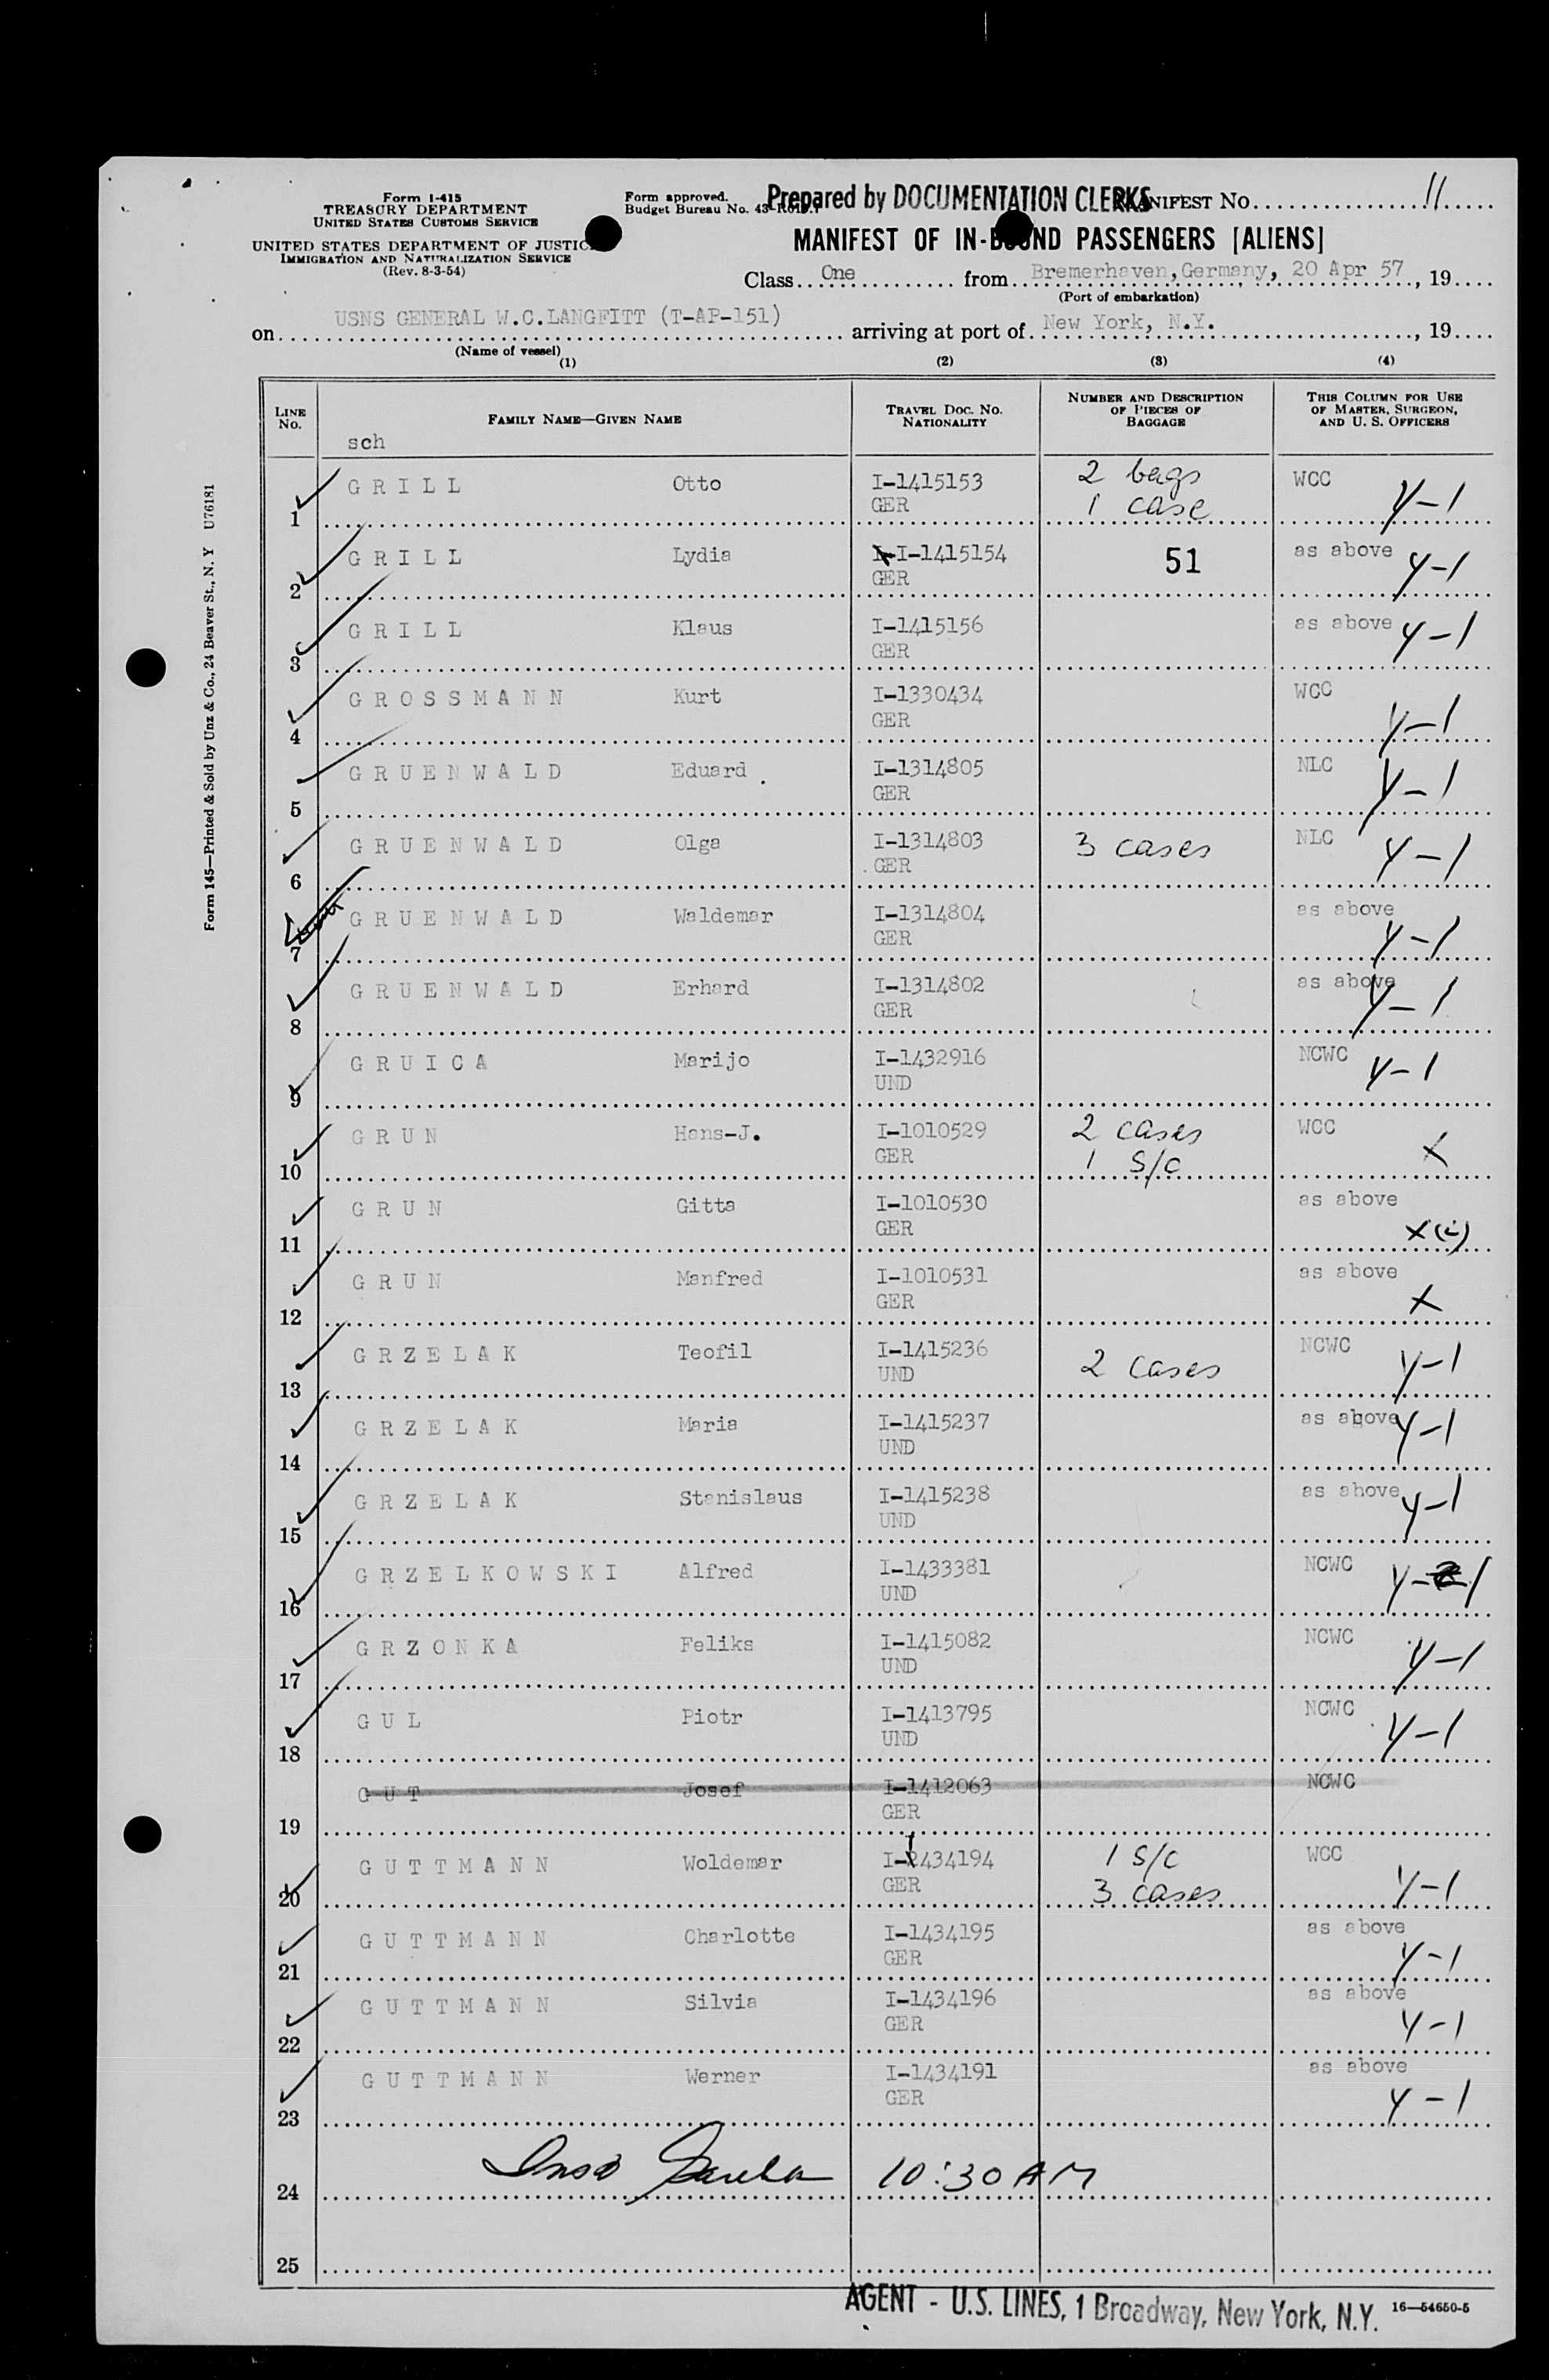 Form I-415
TREASURY DEPARTMENT
UNITED STATES CUSTOMS SERVICE
UNITED STATES DEPARTMENT OF JUSTIC
IMMIGRATION AND NATURALIZATION SERVICE
(Rev. 8-3-54)
Form approved.
Budget Bureau No. 43-
Prepared by DOCUMENTATION CLERKS
MANIFEST No. 11
MANIFEST OF IN-BOUND PASSENGERS [ALIENS]
Class One from Bremerhaven, Germany, 20 Apr 57, 19
(Port of embarkation)
on USNS GENERAL W.C.LANGFITT (T-AP-151) arriving at port of New York, N.Y. , 19
(Name of vessel)
(1) (2) (3) (4)
LINE No. FAMILY NAME—GIVEN NAME TRAVEL DOC. NO. NATIONALITY NUMBER AND DESCRIPTION OF PIECES OF BAGGAGE THIS COLUMN FOR USE OF MASTER, SURGEON, AND U. S. OFFICERS
sch
1 GRILL Otto I-1415153 GER 2 bags 1 case WCC Y-1
2 GRILL Lydia I-1415154 GER 51 as above Y-1
3 GRILL Klaus I-1415156 GER as above Y-1
4 GROSSMANN Kurt I-1330434 GER WCC Y-1
5 GRUENWALD Eduard I-1314805 GER NLC Y-1
6 GRUENWALD Olga I-1314803 GER 3 cases NLC Y-1
7 GRUENWALD Waldemar I-1314804 GER as above Y-1
8 GRUENWALD Erhard I-1314802 GER as above Y-1
9 GRUICA Marijo I-1432916 UND NCWC Y-1
10 GRUN Hans-J. I-1010529 GER 2 cases 1 S/C WCC X
11 GRUN Gitta I-1010530 GER as above X
12 GRUN Manfred I-1010531 GER as above X
13 GRZELAK Teofil I-1415236 UND 2 cases NCWC Y-1
14 GRZELAK Maria I-1415237 UND as above Y-1
15 GRZELAK Stanislaus I-1415238 UND as above Y-1
16 GRZELKOWSKI Alfred I-1433381 UND NCWC Y-1
17 GRZONKA Feliks I-1415082 UND NCWC Y-1
18 GUL Piotr I-1413795 UND NCWC Y-1
19 GUT Josef I-1412063 GER NCWC
20 GUTTMANN Woldemar I-1434194 GER 1 S/C 3 cases WCC Y-1
21 GUTTMANN Charlotte I-1434195 GER as above Y-1
22 GUTTMANN Silvia I-1434196 GER as above Y-1
23 GUTTMANN Werner I-1434191 GER as above Y-1
24 10:30 AM
25
AGENT - U.S. LINES, 1 Broadway, New York, N.Y.
16—54650-5
Form 145—Printed & Sold by Unz & Co., 24 Beaver St., N. Y U76181